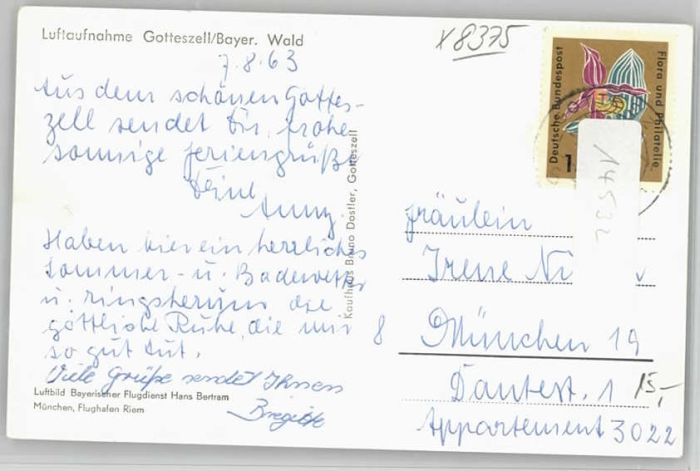 Luftaufnahme Gotteszell/Bayer. Wald
x 8375
7.8.63
Aus dem schönen Gottes-
zell sendet Dir frohe
sonnige Feriengrüße
Deine
Anny.
Haben hier ein herrliches
Sommer- u. Badewetter
u. ringsherum die
göttliche Ruhe, die mir
so gut tut.
Viele Grüße sendet Ihnen
Brigitte
Luftbild Bayerischer Flugdienst Hans Bertram
München, Flughafen Riem
Kaufhaus Bruno Dostler, Gotteszell
Deutsche Bundespost
Flora und Philatelie
14532
Fräulein
Irene Ni
8 München 19
Dantest. 1
15,-
Appartement 3022